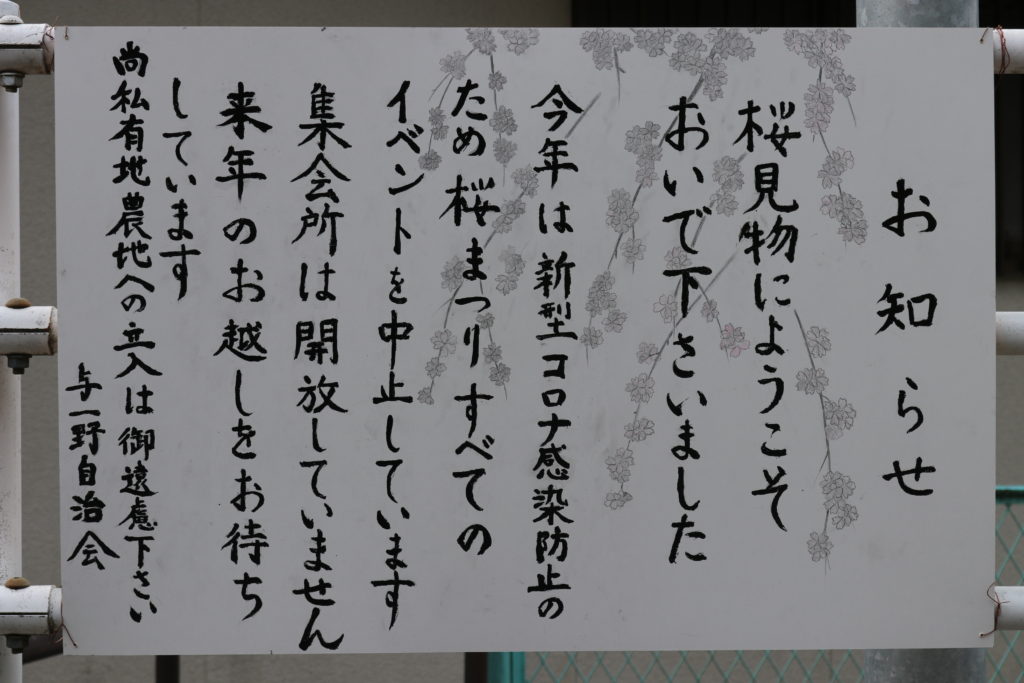 お知らせ
桜見物にようこそ
おいで下さいました
今年は新型コロナ感染防止の
ため桜まつりすべての
イベントを中止しています
集会所は開放していません
来年のお越しをお待ち
しています
尚私有地農地への立入は御遠慮下さい
与一野自治会